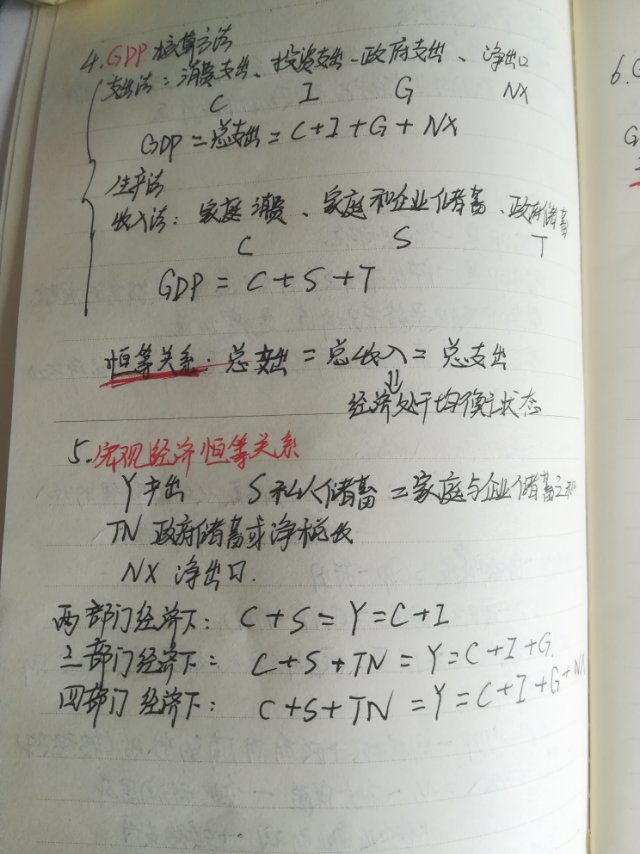 4. GDP核算方法
支出法：消费支出、投资支出、政府支出、净出口
C I G NX
GDP=总支出=C+I+G+NX
生产法
收入法：家庭消费、家庭和企业储蓄、政府储蓄
C S T
GDP = C+S+T
恒等关系：总产出=总收入=总支出
⇓
经济处于均衡状态
5.宏观经济恒等关系
Y产出 S私人储蓄=家庭与企业储蓄之和
TN 政府储蓄或净税收
NX 净出口.
两部门经济下：C+S=Y=C+I
三部门经济下：C+S+TN=Y=C+I+G.
四部门经济下：C+S+TN=Y=C+I+G+NX
6.G
G